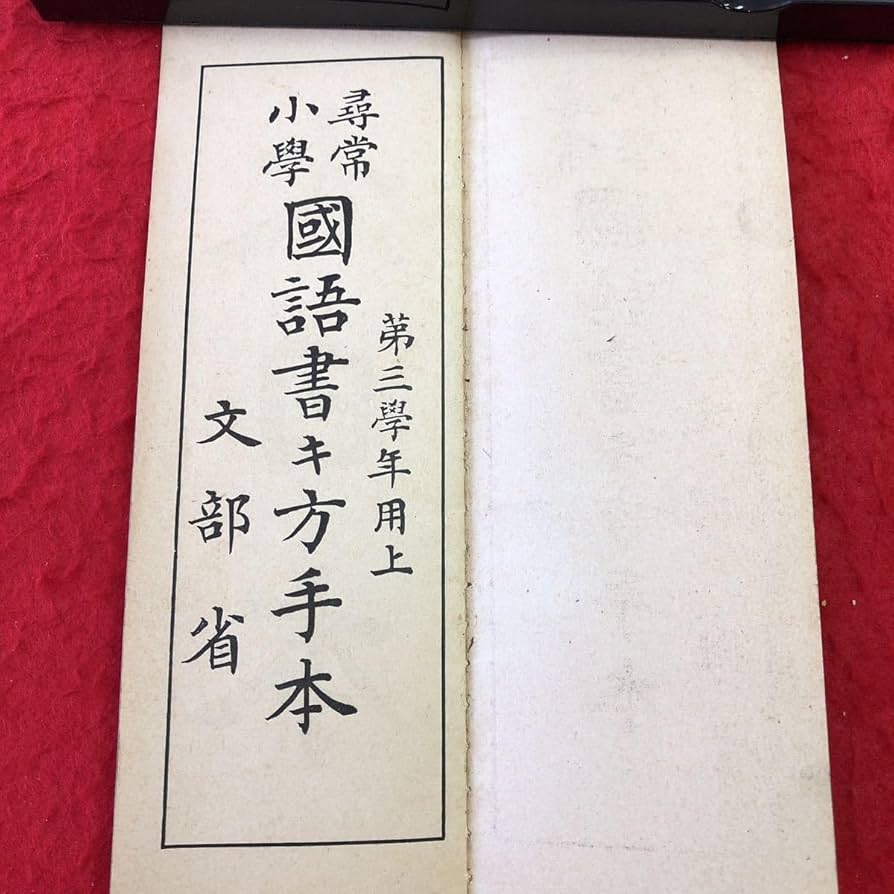 尋常
小學
國語書キ方手本
第三學年用上
文部省